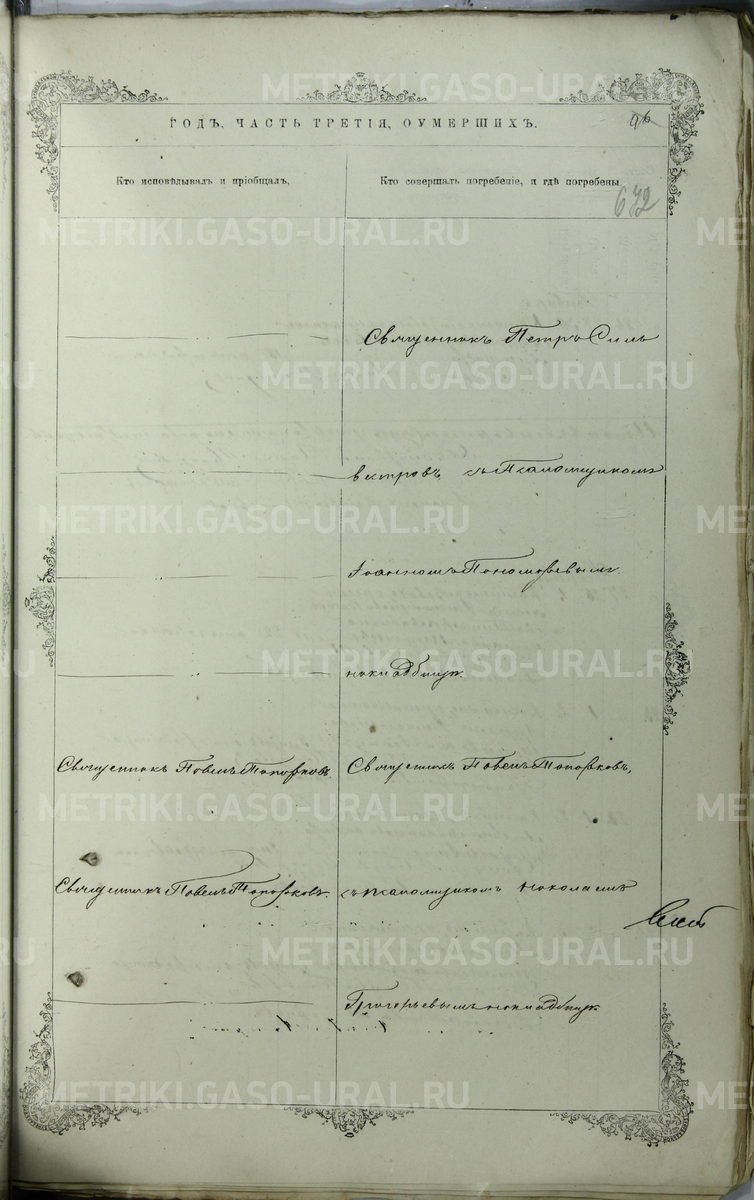 METRIKI.GASO-URAL.RU
ГОДЪ, ЧАСТЬ ТРЕТІЯ, ОУМЕРШИХЪ.
96
Кто исповѣдывалъ и пріобщалъ,
Кто совершалъ погребеніе, и гдѣ погребены
672
Священникъ Петръ Силь
вестровъ съ Псаломщикомъ
Іоанномъ Пономаревымъ
на кладбищѣ.
Священникъ Павелъ Топорковъ
Священникъ Павелъ Топорковъ,
Священникъ Павелъ Топорковъ.
съ псаломщикомъ Николаемъ
Григорьевымъ на кладбищѣ